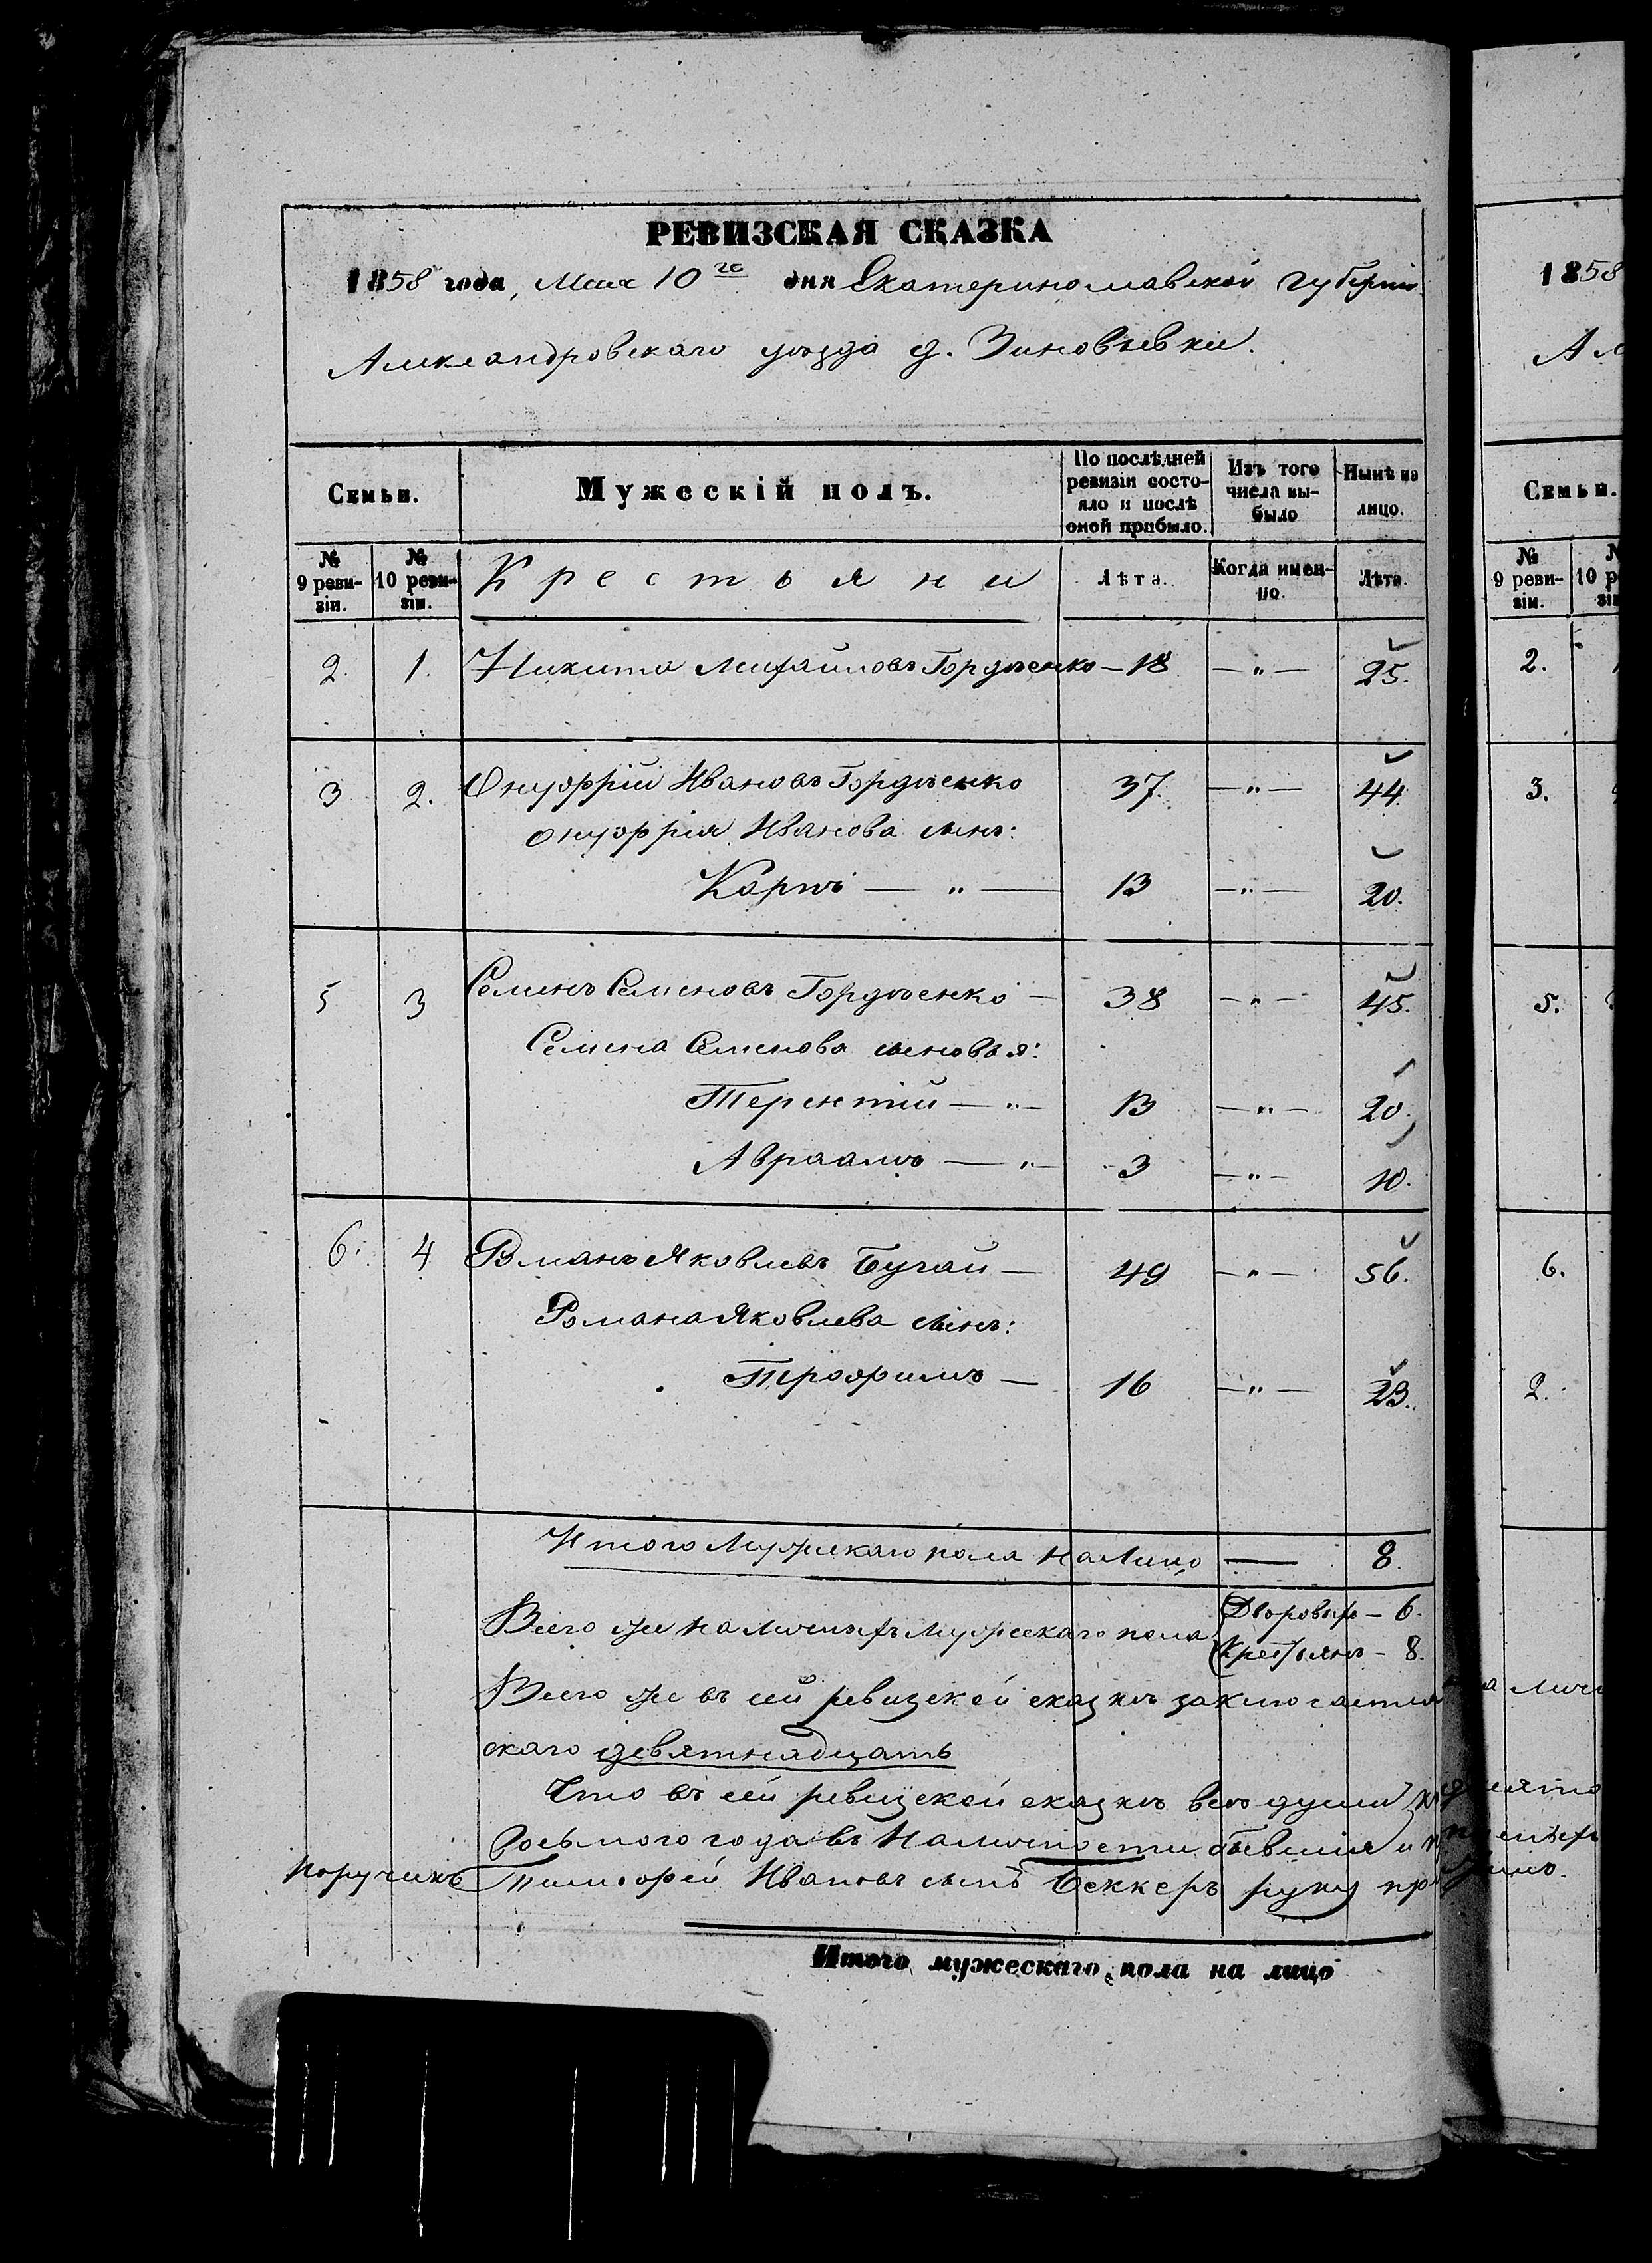 РЕВИЗСКАЯ СКАЗКА
1858 года, Мая 10го дня Екатеринославской губерніи
Александровскаго уѣзда д. Зиновьевки.
Семьи. Мужескій полъ. По послѣдней ревизіи состояло и послѣ оной прибыло. Изъ того числа выбыло Нынѣ на лицо.
№ 9 ревизіи. № 10 ревизіи. Крестьяни Лѣта. Когда именно. Лѣта.
2. 1. Никита Михайловъ Гордѣенко — 18 — „ — 25.
3 2. Онуфрій Ивановъ Гордѣенко 37. — „ — 44.
Онуфрія Иванова сынъ:
Карпъ — „ — 13 — „ — 20.
5 3 Семенъ Семеновъ Гордѣенко — 38 — „ — 45.
Семена Семенова сыновья:
Терентій — „ — 13 — „ — 20.
Авраамъ — „ — 3 — „ — 10.
6. 4 Романъ Яковлевъ Бугай — 49 — „ — 56.
Романа Яковлева сынъ:
Трофимъ — 16 — „ — 23.
Итого Мужескаго пола на Лицо — 8.
Всего же на Личныхъ Мужескаго пола Дворовыхъ — 6.
Крестьянъ — 8.
Всего же въ сей ревизской сказкѣ заключается
скаго девятнадцать
Что въ сей ревизской сказкѣ всѣ души
восьмого года въ Наличности бывшія и
Поручикъ Тимофей Ивановъ сынъ Беккеръ руку пр
Итого мужескаго пола на лицо
1858
Ал
Семьи.
№ 9 ревизіи. 10 р
2.
3.
5.
6.
2.